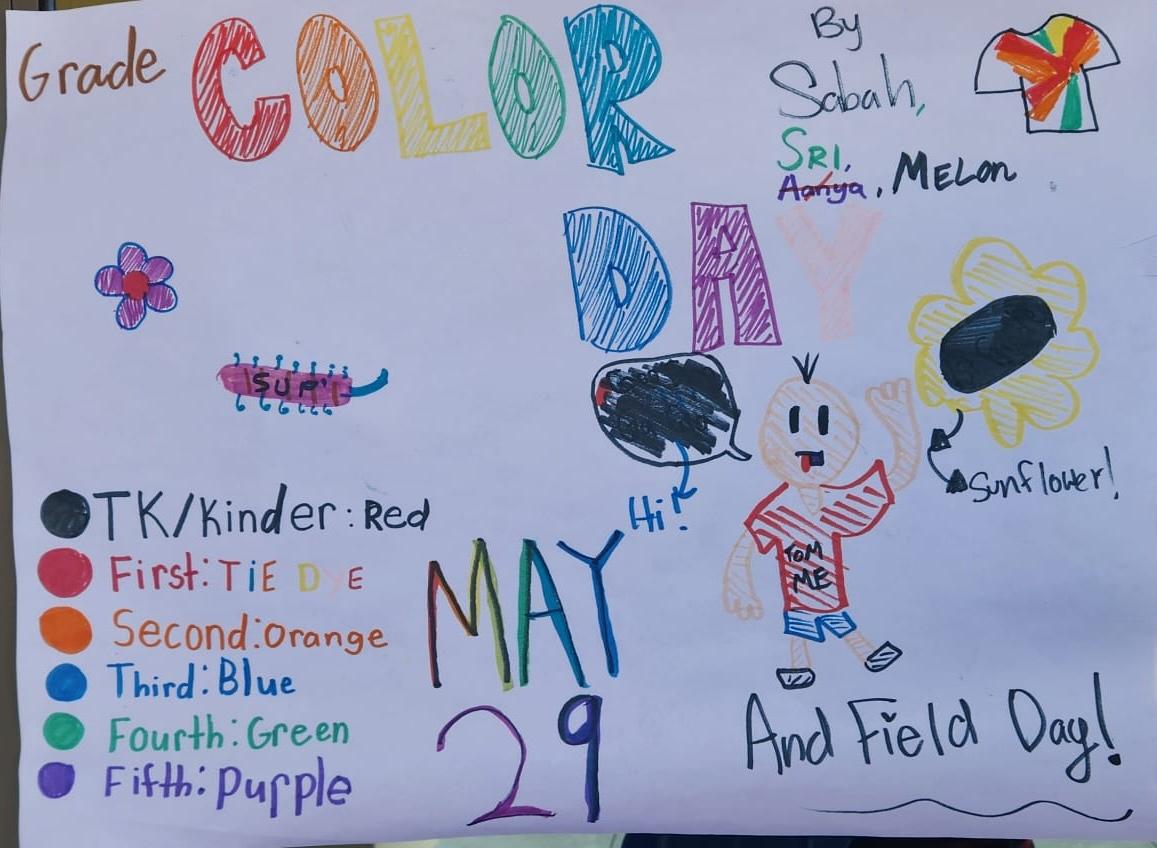 Grade COLOR
DAY
By
Sabah,
SRI,
Aanya, MELON
SUP'
Hi!
Sunflower!
TOM
ME
TK/Kinder: Red
First: TiE DYE
Second: Orange
Third: Blue
Fourth: Green
Fifth: Purple
MAY
29
And Field Day!